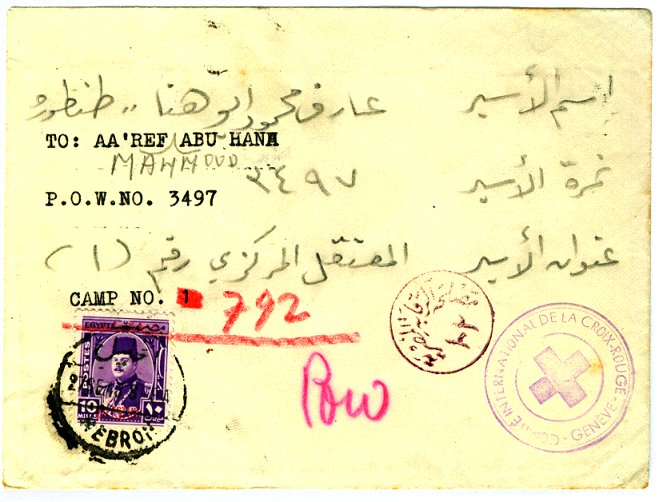 اسم الأسير عارف محمود ابو هنا
TO: AA'REF ABU HANA
MAHMOUD
نمرة الأسير ٣٤٩٧
P.O.W.NO. 3497
عنوان الأسير المعتقل المركزي رقم (١)
CAMP NO. 1
792
EGYPTE
10
HEBRON
POW
٢٢
COMITE INTERNATIONAL DE LA CROIX-ROUGE - GENEVE -